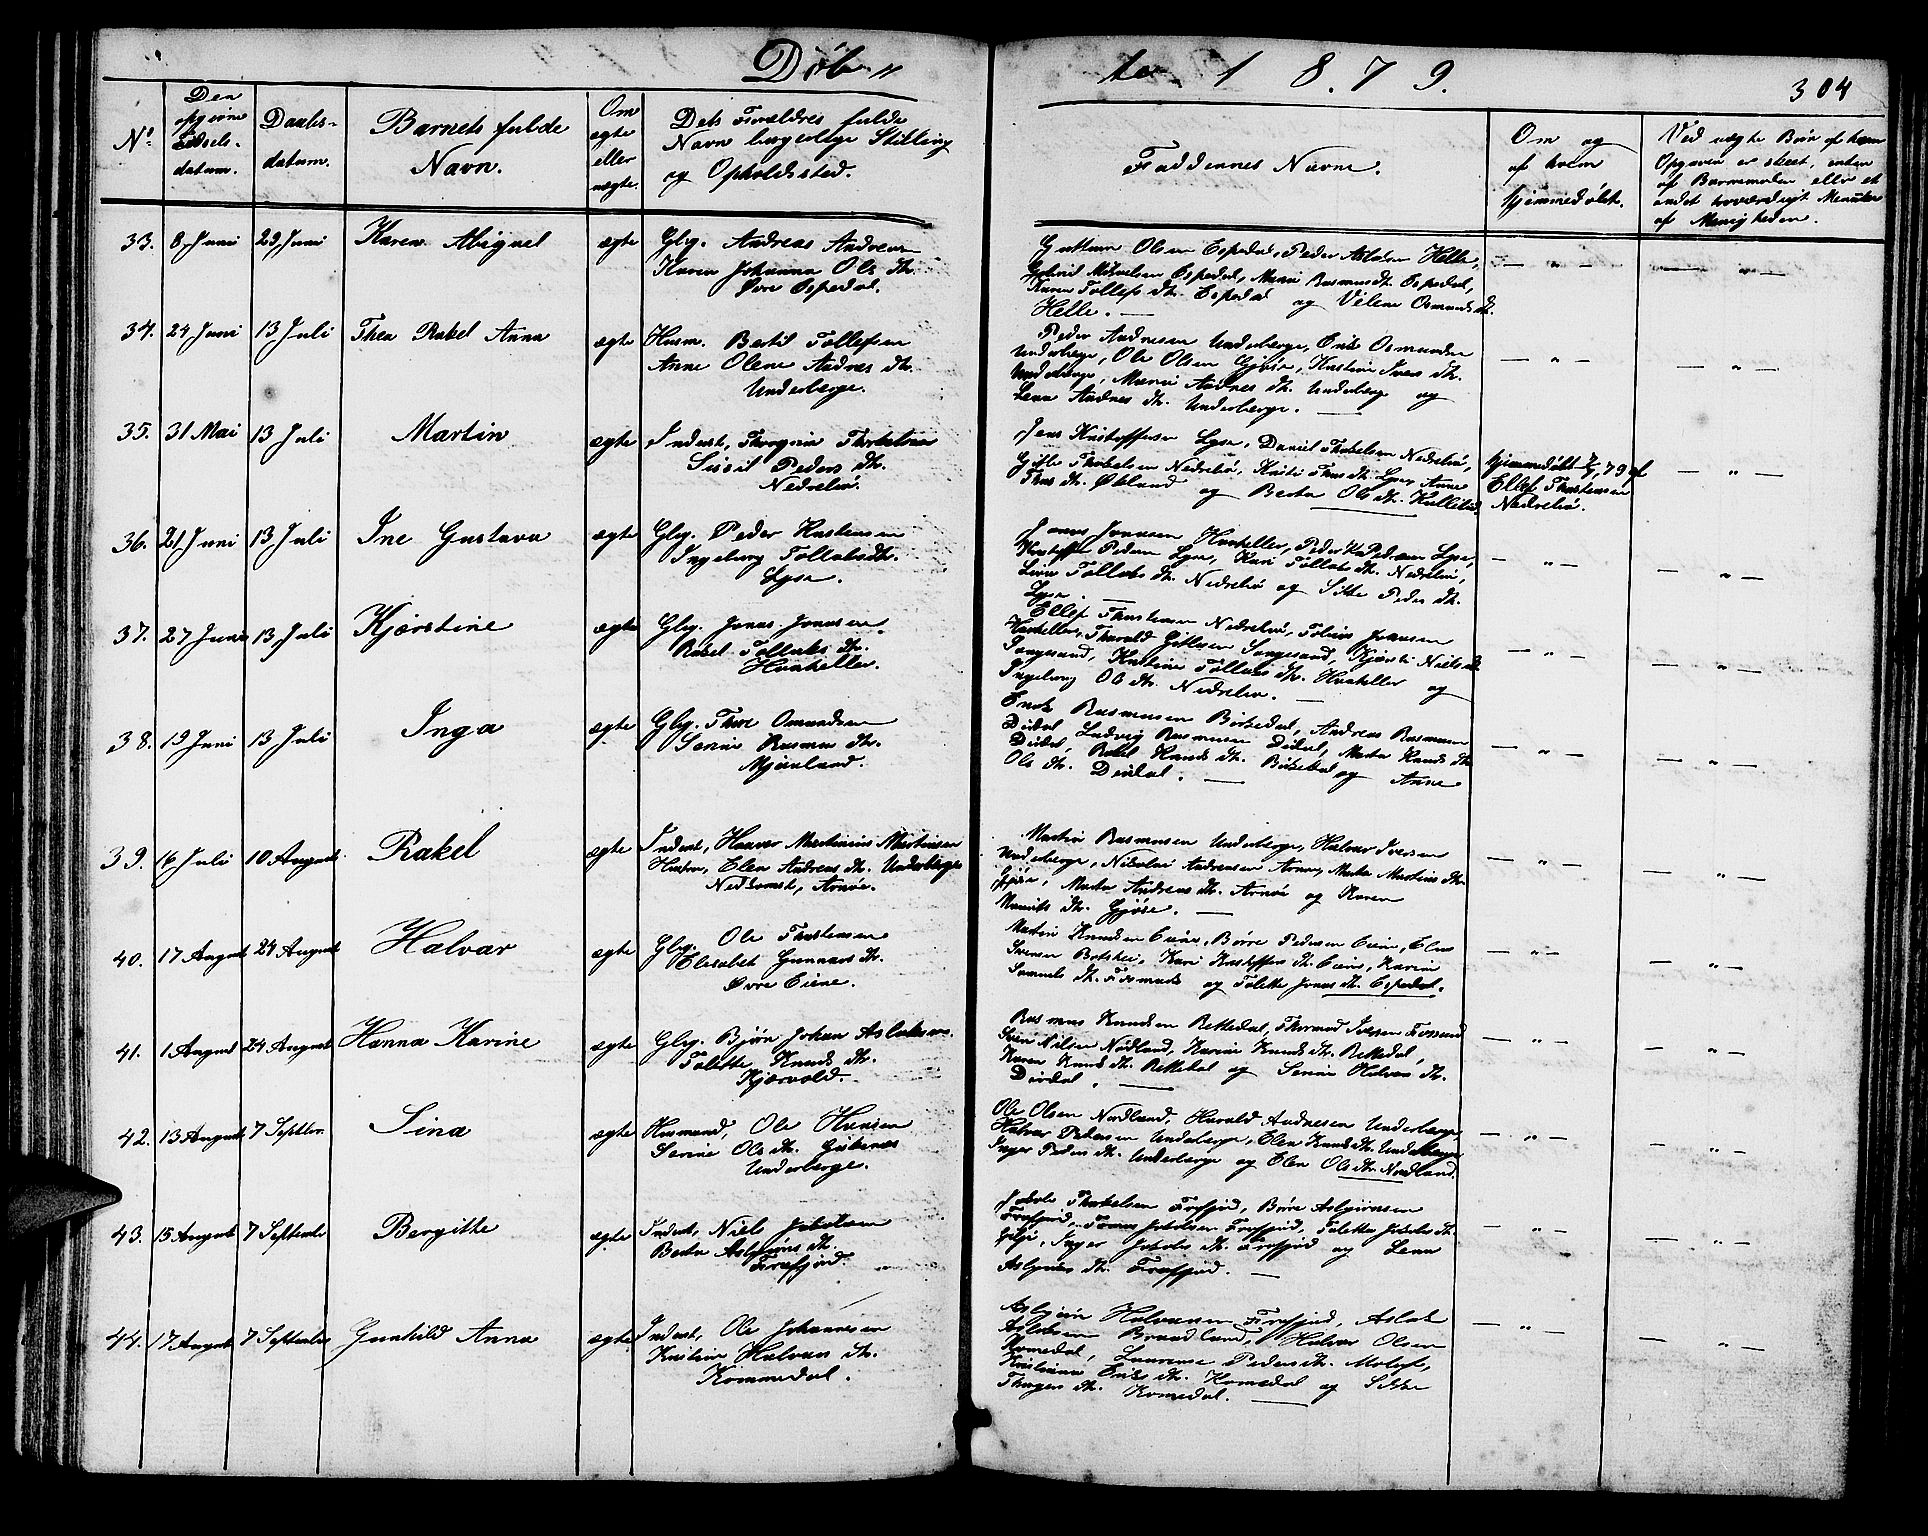 Døb"
te 1 8 . 7 9 .
304
No
Den opgivne Fødsels-datum.
Daabs-datum.
Barnets fulde Navn.
Om ægte eller uægte.
Dets Forældres fulde Navn borgerlige Stilling og Opholdssted.
Faddernes Navne.
Om og af hvem hjemmedøbt.
Ved uægte Børn af hvem Opgaven er skeet, enten af Barnemoder eller et andet troværdigt Menneske af Menigheden.
33. 8 Juni 29 Juni Karen Abiguel ægte Gbg. Andreas Andreasen
Karen Johanna Ols Dtr.
Øvre Espedal.
Guttorm Olsen Espedal, Peder Aslaksen Helle,
Gabriel Mikkelsen Espedal, Maria Rasmusdtr. Espedal,
Karen Tollefs Dtr. Espedal og Vilene Osmunds Dtr.
Helle.
— " —
— " —
34. 24 Juni 13 Juli Thea Rakel Anna ægte Husm. Bertil Tollefsen
Anne Olene Andreas Dtr.
Underberge.
Peder Andreasen Underberge, Erik Osmundsen
Underberge, Ole Olsen Gjøse, Kristine Ivers Dtr.
Underberge, Maria Andreas Dtr. Underberge og
Lena Andreas Dtr. Underberge.
— " —
— " —
35. 31 Mai 13 Juli Martin ægte Inderst, Thorgrim Thorkelsen
Sissil Peders Dtr.
Nedreliø.
Jens Kristoffersen Lyse, Daniel Thorkelsen Nedreliø,
Gitle Thorkelsen Nedreliø, Kristi Thors Dtr. Lyse, Anne
Thors Dtr. Økland og Berta Ols Dtr. Kallelid.
hjemmedøbt 79 af
Ellef Thorstensen
Nedreliø.
— " —
36. 21 Juni 13 Juli Ine Gustava ægte Gbg. Peder Kristensen
Ingeborg Tollaks Dtr.
Lyse.
Jonas Jonassen Haaheller, Peder Pedersen Lyse,
Kristoffer Pedersen Lyse, Kari Tollaks Dtr. Nedreliø,
Tollaks Dtr. Nedreliø og Sikke Peders Dtr.
Lyse.
— " —
— " —
37. 27 Juni 13 Juli Kjærstine ægte Gbg. Jonas Jonassen
Rakel Tollaks Dtr.
Haaheller.
Ellef Thorstensen Nedreliø, Jonassen
Haaheller, Tharald Gitlesen Songesand, Kjærsti Niels Dtr.
Songesand, Kristine Tollaks Dtr. Haaheller og
Ingeborg Ols Dtr. Nedreliø.
— " —
— " —
38. 19 Juni 13 Juli Inga ægte Gbg. Thore Omundsen
Serine Rasmus Dtr.
Mjaaland.
Enok Rasmussen Birkedal, Andreas Rasmussen
Dirdal, Ludvig Rasmussen Dirdal, Marta Knuds Dtr.
Dirdal, Rakel Knuds Dtr. Birkedal og Anne
Ols Dtr. Dirdal.
— " —
— " —
39. 16 Juli 10 August Rakel ægte Inderst, Haaver Martinius Martinsen
Hustru, Elen Andreas Dtr. Underberge
Nedkomst, Arnøe.
Martin Rasmussen Underberge, Halvor Iversen
Underberge, Nikolai Andreassen Arnøe, Marta Martins Dtr.
Gjøse, Marta Andreas Dtr. Arnøe og Karen
Mauritz Dtr. Gjøse.
— " —
— " —
40. 17 August 24 August Halvar ægte Gbg. Ole Thorstensen
Elisabet Gunnars Dtr.
Øvre Eiene.
Martin Knudsen Eiene, Børre Pedersen Eiene, Elias
Svensen Botshei, Kari Kristoffers Dtr. Eiene, Karine
Samuels Dtr. Fosmark og Tolette Jonas Dtr. Espedal.
— " —
— " —
41. 1 August 24 August Hanna Karine ægte Gbg. Bjørn Johan Aslaksen
Tolette Knuds Dtr.
Kjærvold.
Rasmus Knudsen Rettedal, Thormod Iversen Fossand
Svein Nilsen Nødland, Karine Knuds Dtr. Rettedal,
Karen Knuds Dtr. Rettedal og Serine Halvors Dtr.
Dirdal.
— " —
— " —
42. 13 August 7 Septbr. Sina ægte Husmand, Ole Hansen
Serine Ols Dtr.
Underberge.
Ole Olsen Nordland, Harald Andreasen Underberge,
Halvor Pedersen Underberge, Elen Knuds Dtr. Underberge
Inger Peders Dtr. Underberge og Elen Ols Dtr. Nordland.
— " —
— " —
43. 15 August 7 September Bergitte ægte Inderst, Niels Jakobsen
Berta Asbjørns Dtr.
Frafjord.
Jakob Thorkelsen Frafjord, Børe Asbjørnsen
Frafjord, Jakobsen Frafjord, Tolette Jakobs Dtr.
Gilje, Inger Jakobs Dtr. Frafjord og Lena
Asbjørns Dtr. Frafjord.
— " —
— " —
44. 17 August 7 September Gunhild Anna ægte Inderst, Ole Johannesen
Kristine Halvors Dtr.
Kommedal.
Asbjørn Halvorsen Frafjord, Aslak
Aslaksen Brandland, Halvor Olsen
Komedal, Laurense Peders Dtr. Molaug,
Kristiane Eriks Dtr. Komedal og Sikke
Thorgers Dtr. Komedal.
— " —
— " —